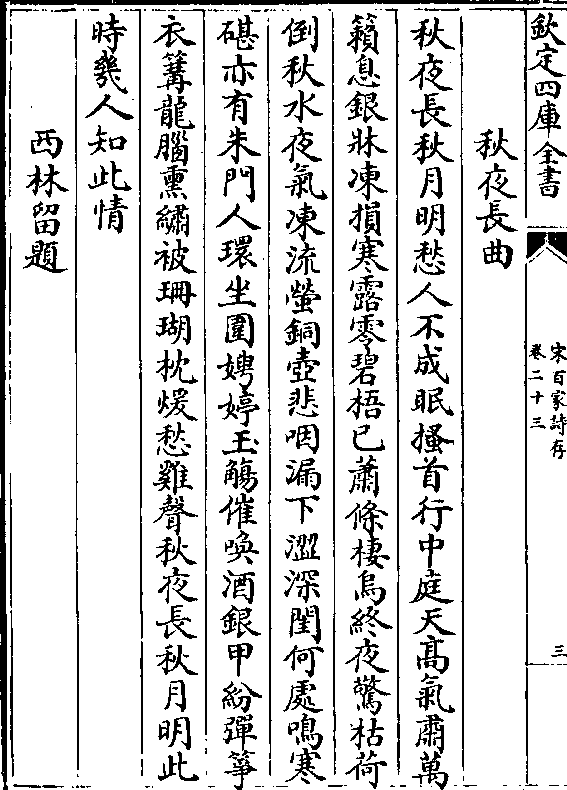 欽定四庫全書
宋百家詩存
卷二十三
三
秋夜長曲
秋夜長秋月明愁人不成眠搔首行中庭天髙氣肅萬
籟息銀牀凍損寒露零碧梧已蕭條棲烏終夜驚枯荷
倒秋水夜氣凍流螢銅壺悲咽漏下澀深閨何處鳴寒
碪亦有朱門人環坐圍娉婷玉觴催喚酒銀甲紛彈箏
衣篝龍腦熏繡被珊瑚枕煖愁雞聲秋夜長秋月明此
時幾人知此情
西林留題